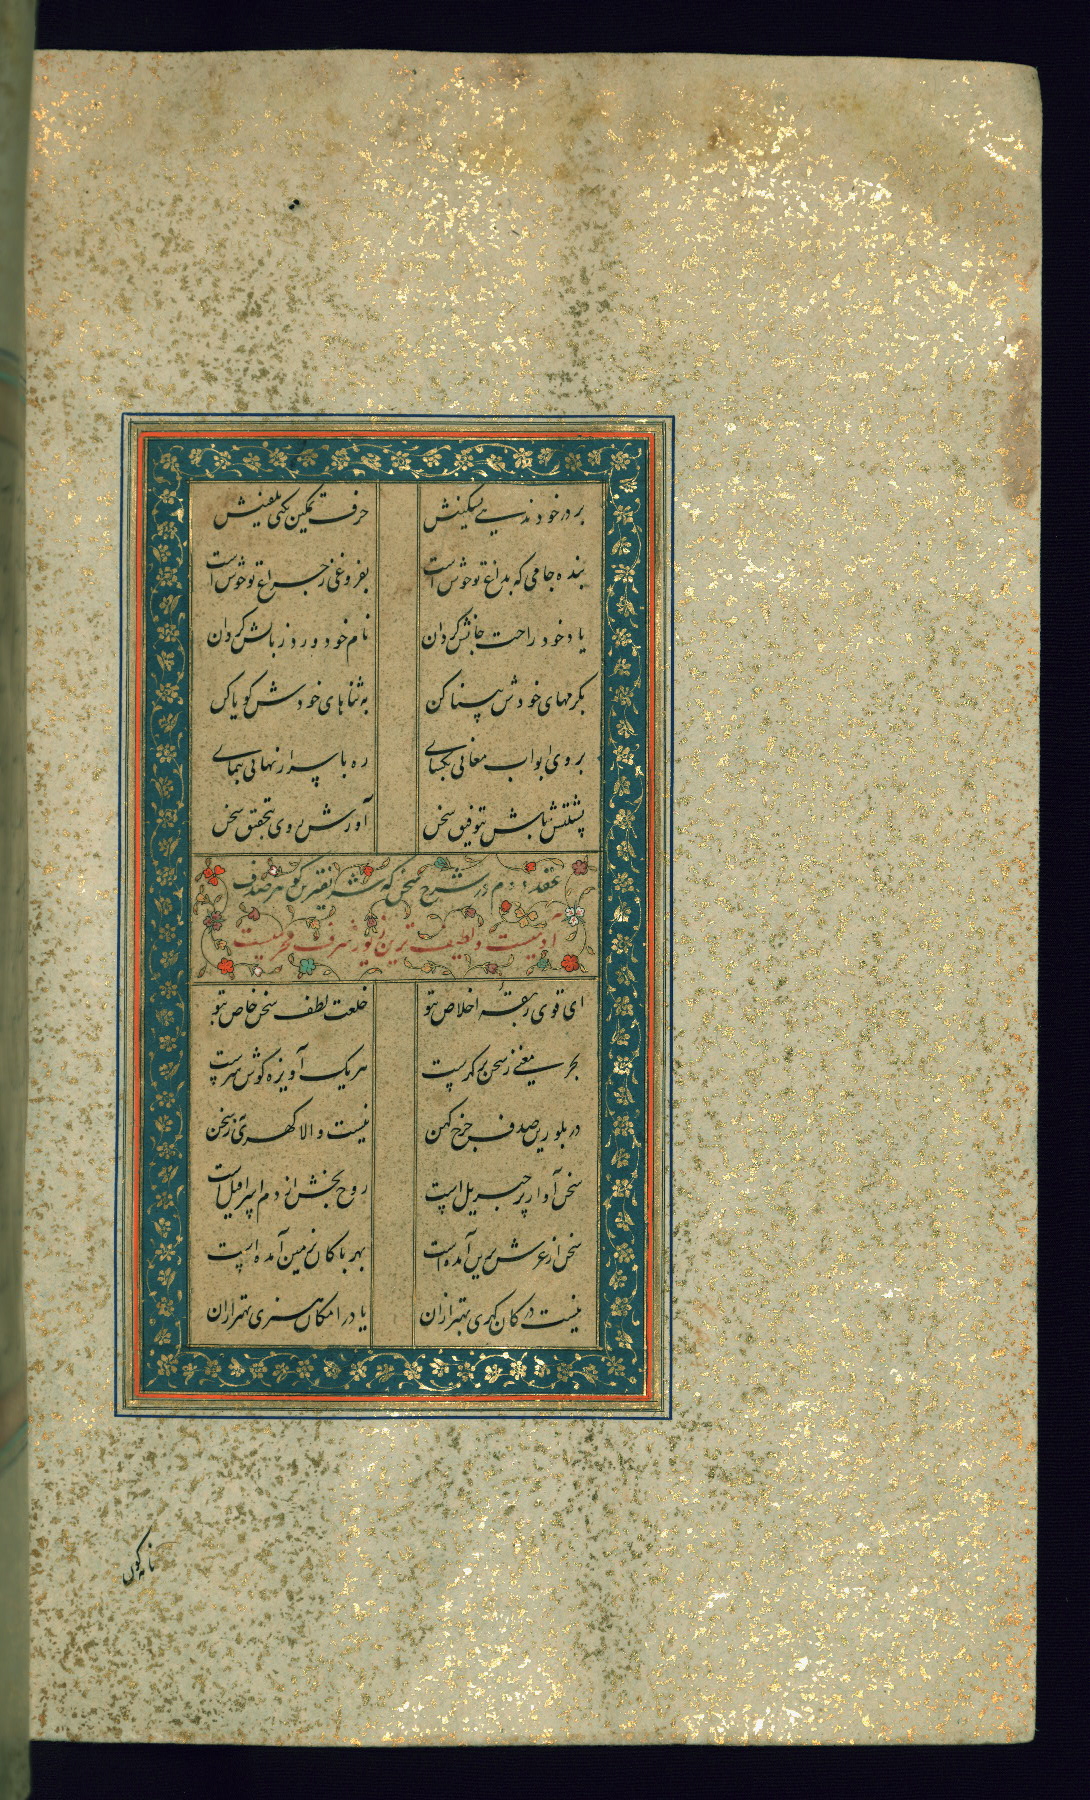 بر در خود ندیی تسکینش حرف تمکین نکنی تلقینش
بنده جامی که بداغ تو خوش است بفروغی ز چراغ تو خوش است
یاد خود راحت جانش گردان نام خود ورد زبانش گردان
بکرمهای خودش بینا کن به ثناهای خودش کویا کن
بروی ابواب معانی بکشای ره باسرار نهانی بنمای
پشتش باش بتوفیق سخن آور رویش بتحقیق سخن
عقد دوم در شرح سخن که شریفترین کوهر صدف
آدمیست و لطیف ترین زیور شرف محرمیست
ای قوی ربقهٔ اخلاص بتو خلعت لطف سخن خاص بتو
بحر معنی ز سخن پر کهرست هر یک آویزه کوش هنرست
در بلورین صدف چرخ کهن نیست والا کهری به ز سخن
سخن آواز پر جبریل است روح بخش از دم اسرافیل است
سخن از عرش برین آمده است بهر پاکان بزمین آمده است
نیست در کان کهری بهتر ازان یا در امکان هنری بهتر ازان
نامه کون